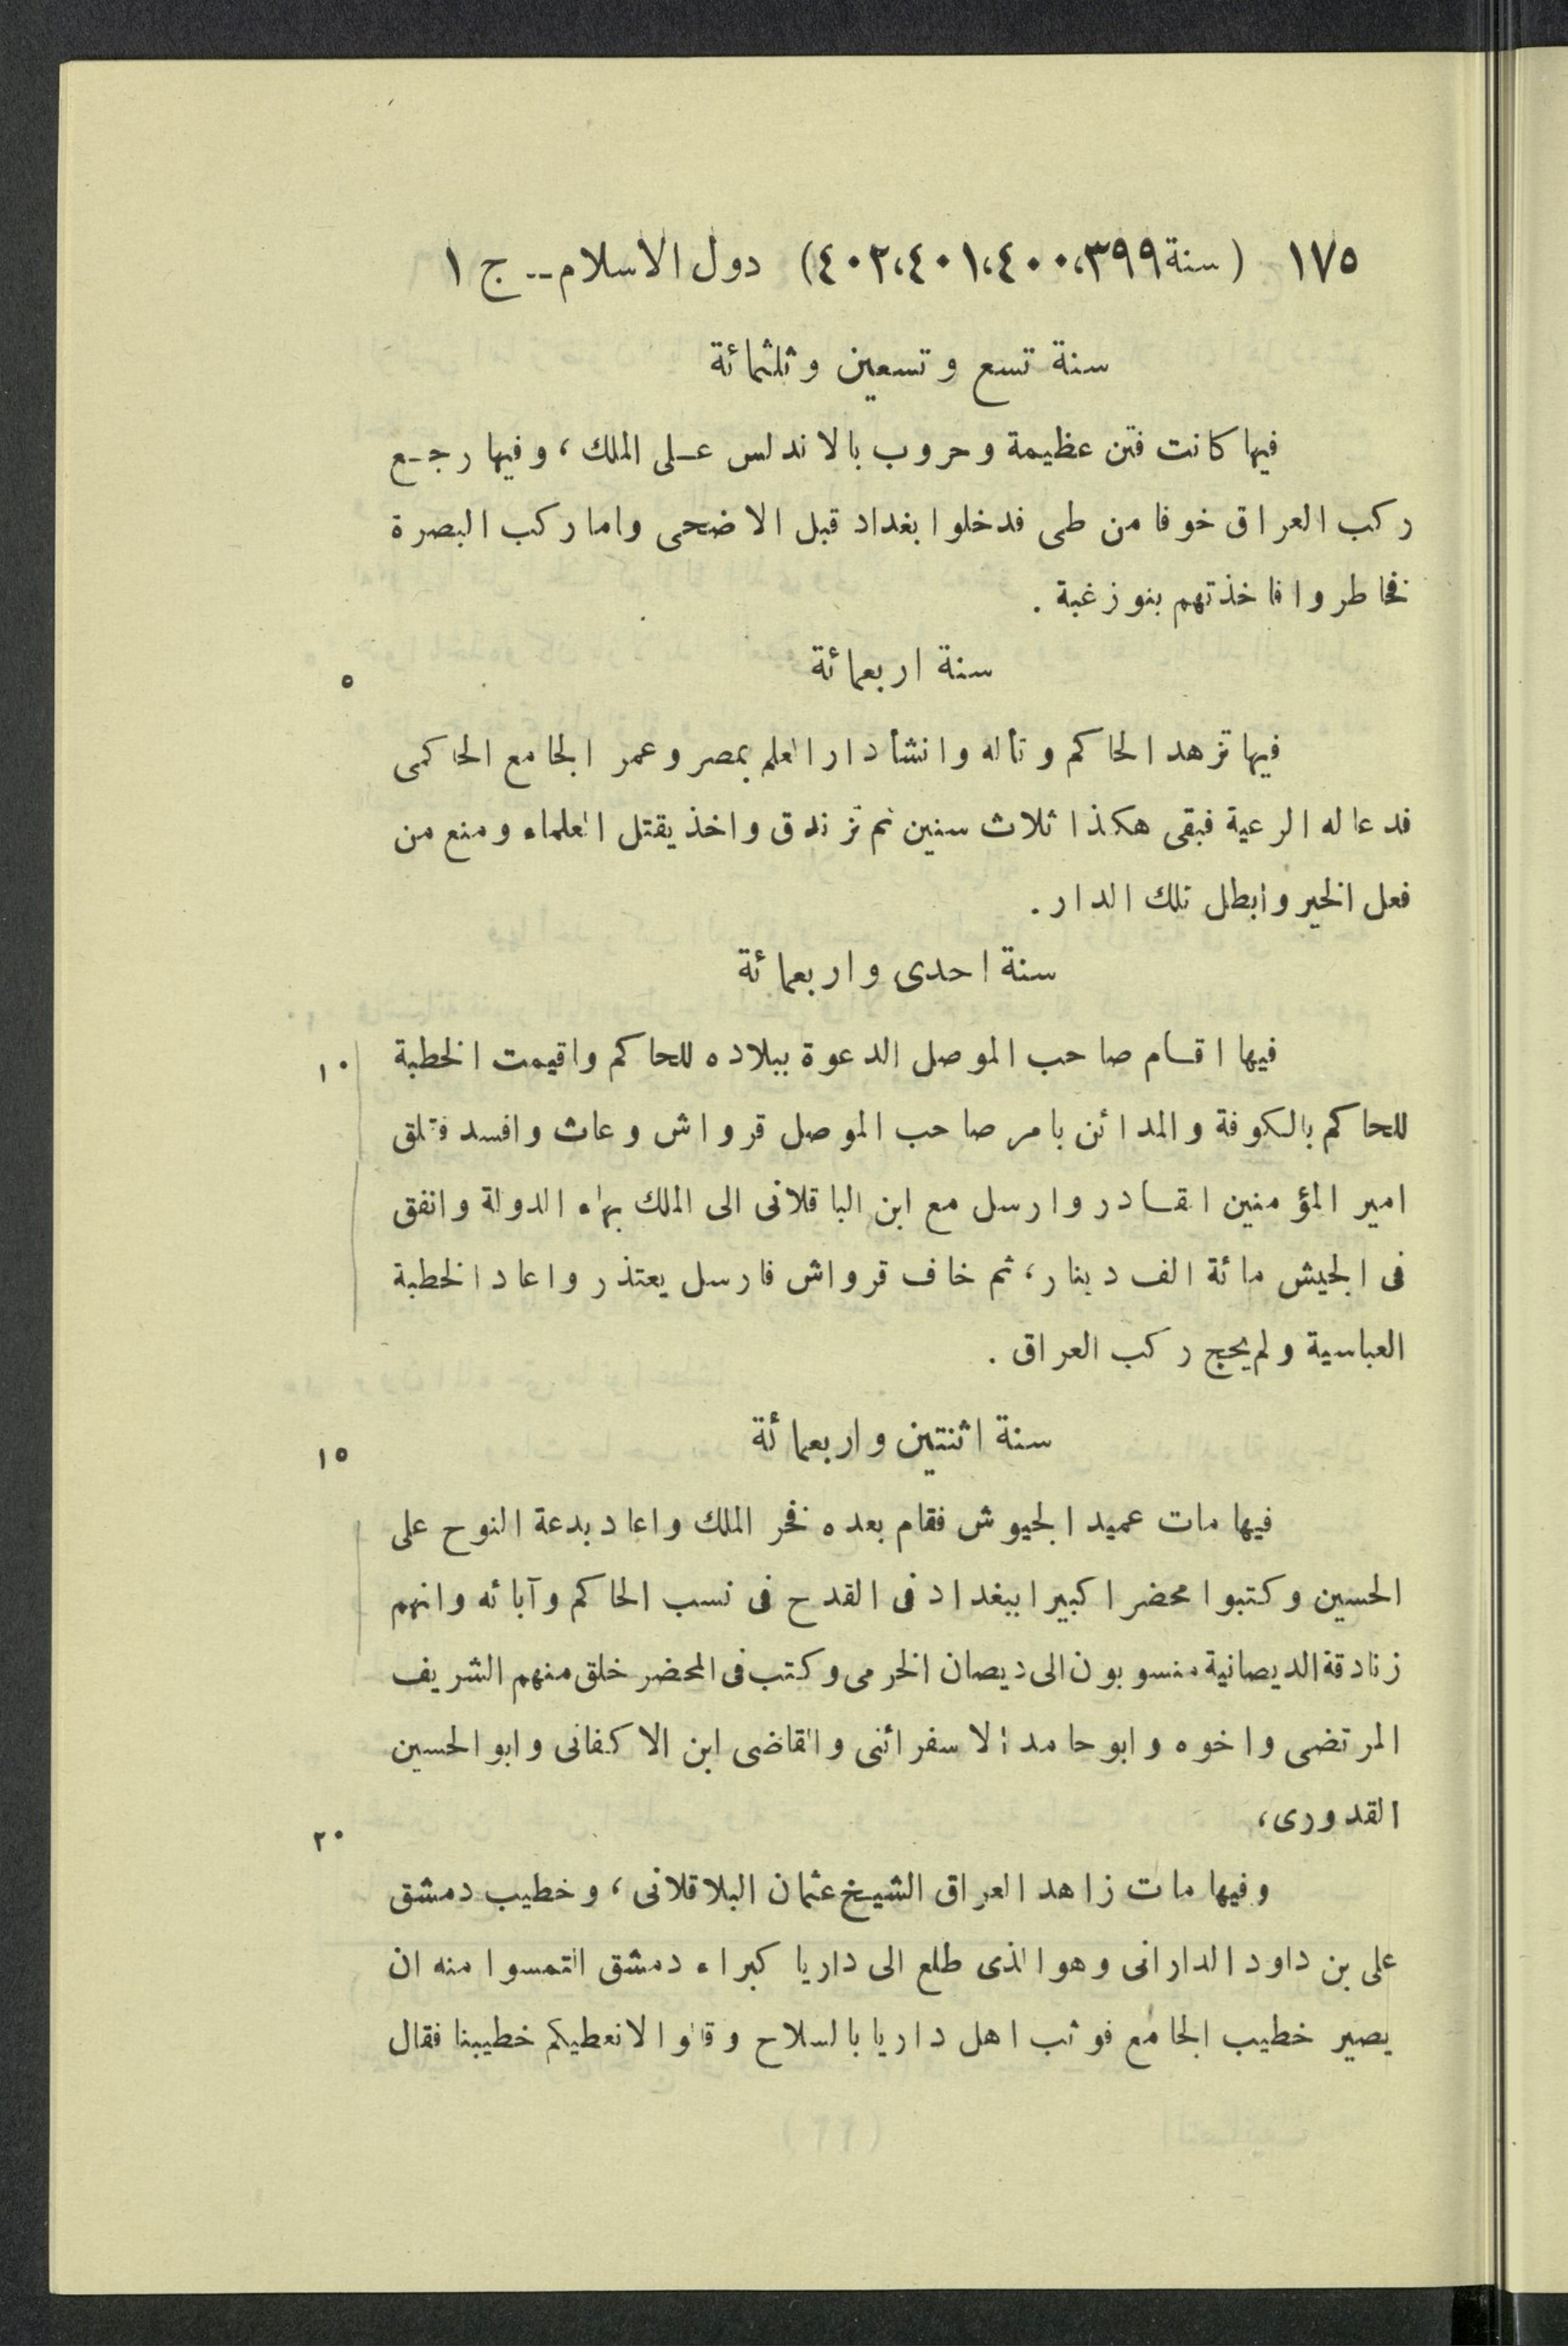 ١٧٥ (سنة ٣٩٩،٤٠٠،٤٠١،٤٠٢) دول الاسلام -- ج ١
سنة تسع وتسعين وثلثمائة
فيها كانت فتن عظيمة وحروب بالاندلس على الملك، وفيها رجع
ركب العراق خوفا من طى فدخلوا بغداد قبل الاضحى واما ركب البصرة
فخاطروا فاخذتهم بنو زغبة .
سنة اربعمائة
٥
فيها تزهد الحاكم وتأله وانشأ دار العلم بمصر وعمر الجامع الحاكمى
فدعا له الرعية فبقى هكذا ثلاث سنين ثم تزندق واخذ يقتل العلماء ومنع من
فعل الخير وابطل تلك الدار .
سنة احدى واربعمائة
فيها اقام صاحب الموصل الدعوة ببلاده للحاكم واقيمت الخطبة
١٠
للحاكم بالكوفة والمدائن بامر صاحب الموصل قرواش وعاث وافسد فقلق
امير المؤمنين القادر وارسل مع ابن الباقلانى الى الملك بهاء الدولة وانفق
فى الجيش مائة الف دينار، ثم خاف قرواش فارسل يعتذر واعاد الخطبة
العباسية ولم يحج ركب العراق .
سنة اثنتين واربعمائة
١٥
فيها مات عميد الجيوش فقام بعده فخر الملك واعاد بدعة النوح على
الحسين وكتبوا محضرا كبيرا ببغداد فى القدح فى نسب الحاكم وآبائه وانهم
زنادقة الديصانية منسوبون الى ديصان الخرمى وكتب فى المحضر خلق منهم الشريف
المرتضى واخوه وابو حامد الاسفرائنى والقاضى ابن الاكفانى وابو الحسين
القدورى،
٢٠
وفيها مات زاهد العراق الشيخ عثمان البلاقلانى، وخطيب دمشق
على بن داود الدارانى وهو الذى طلع الى داريا كبراء دمشق التمسوا منه ان
يصير خطيب الجامع فوثب اهل داريا بالسلاح وقالوا لا نعطيكم خطيبنا فقال